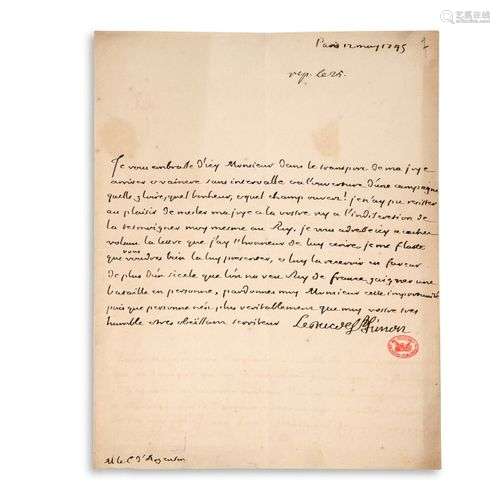 Paris 12 may 1745
rep. le 25.
Je vous embrasse d'icy Monsieur dans le transport de ma joye
arriver et vaincre sans intervalle et a l'ouverture d'une campagne
quelle gloire, quel bonheur, et quel champ ouvert! je n'ay pu resister
au plaisir de mesler ma joye a la vostre ny a l'indiscretion de
la tesmoigner moy mesme au Roy, je vous adresse icy a cachet
volant la lettre que j'ay l'honneur de luy ecrire je me flatte
que vous voudres bien la luy presenter, et luy la recevoir en faveur
de plus d'un siecle que l'on ne veu Roy de france gaigner une
bataille en personne, pardonnes moy Monsieur cette importunité
puis que personne n'est plus veritablement que moy vostre tres
humble et tres obeissant serviteur Le Duc de St Simon
M le C d'Argenson